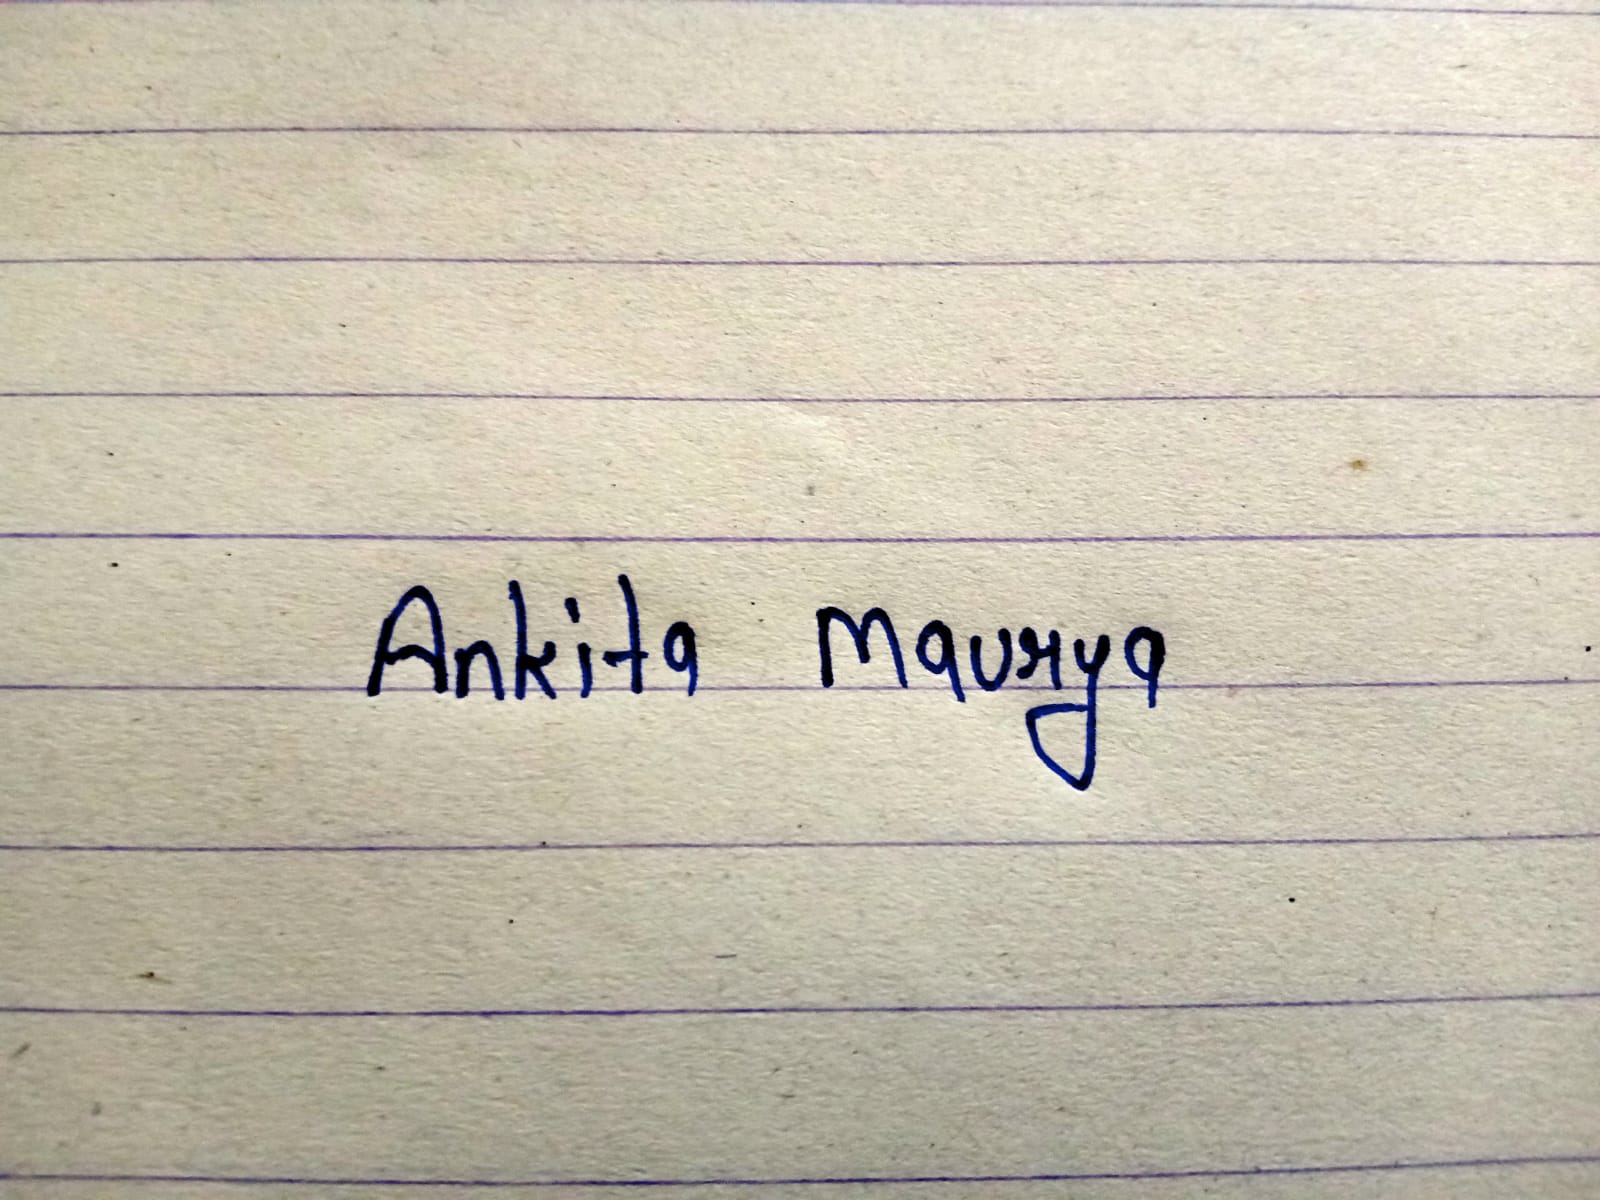 Ankita Maurya